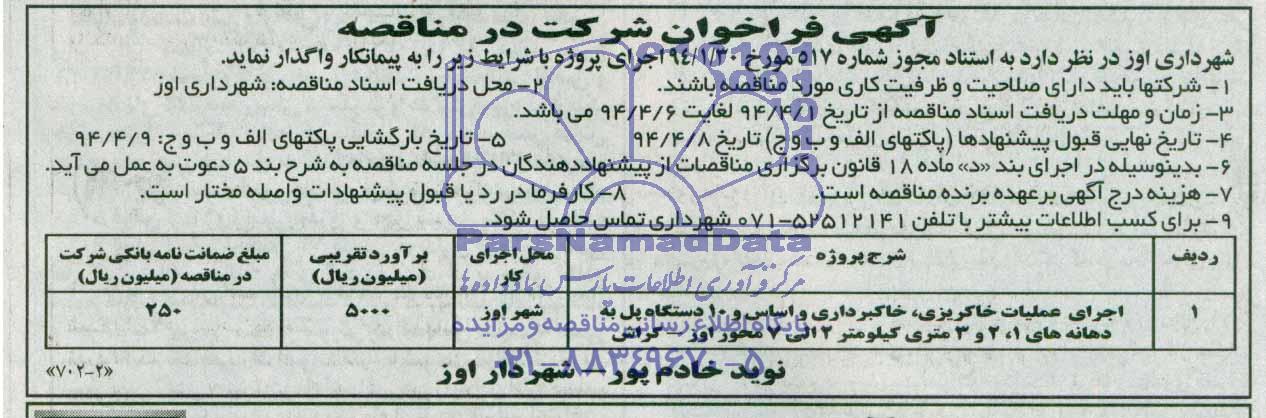 آگهی فراخوان شرکت در مناقصه
شهرداری اوز در نظر دارد به استناد مجوز شماره ۵۱۷ مورخ ۹٤/۱/۳۰ اجرای پروژه با شرایط زیر را به پیمانکار واگذار نماید.
۱- شرکتها باید دارای صلاحیت و ظرفیت کاری مورد مناقصه باشند. ۲- محل دریافت اسناد مناقصه: شهرداری اوز
۳- زمان و مهلت دریافت اسناد مناقصه از تاریخ ۹۴/۴/۱ لغایت ۹۴/۴/۶ می باشد.
۴- تاریخ نهایی قبول پیشنهادها (پاکتهای الف و ب و ج) تاریخ ۹۴/۴/۸ ۵- تاریخ بازگشایی پاکتهای الف و ب و ج: ۹۴/۴/۹
۶- بدینوسیله در اجرای بند «د» ماده ۱۸ قانون برگزاری مناقصات از پیشنهاددهندگان در جلسه مناقصه به شرح بند ۵ دعوت به عمل می آید.
۷- هزینه درج آگهی برعهده برنده مناقصه است. ۸- کارفرما در رد یا قبول پیشنهادات واصله مختار است.
۹- برای کسب اطلاعات بیشتر با تلفن ۵۲۵۱۲۱۴۱-۰۷۱ شهرداری تماس حاصل شود.
ParsNamadData
ردیف شرح پروژه محل اجرای کار برآورد تقریبی (میلیون ریال) مبلغ ضمانت نامه بانکی شرکت در مناقصه (میلیون ریال)
مرکز فرآوری اطلاعات پارس نماد داده ها
۱ اجرای عملیات خاکریزی، خاکبرداری و اساس و ۱۰ دستگاه پل به دهانه های ۱، ۲ و ۳ متری کیلومتر ۲ الی ۷ محور اوز - کراش شهر اوز ۵۰۰۰ ۲۵۰
پایگاه اطلاع رسانی مناقصه و مزایده
۰۲۱-۸۸۳۴۹۶۷۰-۵
نوید خادم پور - شهردار اوز
«۷۰۲-۲»